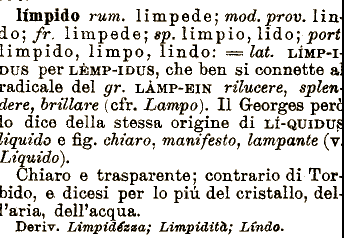 límpido rum. limpede; mod. prov. lin-
do; fr. limpede; sp. limpio, lido; port
limpido, limpo, lindo: = lat. LÌMP-I-
DUS per LÈMP-IDUS, che ben si connette al
radicale del gr. LÀMP-EIN rilucere, splen-
dere, brillare (cfr. Lampo). Il Georges però
lo dice della stessa origine di LÍ-QUIDUS
liquido e fig. chiaro, manifesto, lampante (v.
Líquido).
Chiaro e trasparente; contrario di Tor-
bido, e dicesi per lo piú del cristallo, del-
l'aria, dell'acqua.
Deriv. Limpidézza; Limpidità; Líndo.